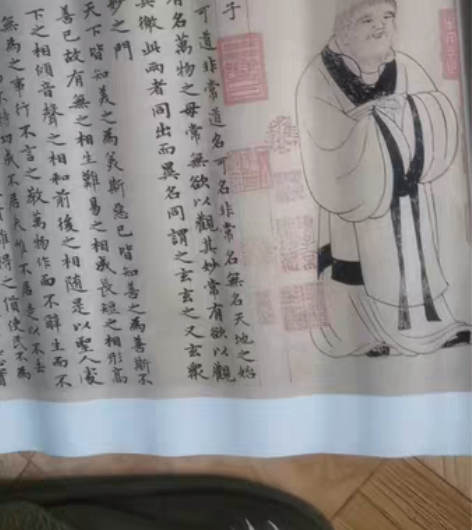 子
可道非常道名可名非常名無名天地之始
有名萬物之母常無欲以觀其妙常有欲以觀
其徼此兩者同出而異名同謂之玄玄之又玄衆
妙之門
天下皆知美之為美斯惡已皆知善之為善斯不
善已故有無之相生難易之相成長短之相形高
下之相傾音聲之相和前後之相隨是以聖人處
無為之事行不言之教萬物作而不辭生而不
不恃功成不居夫惟不居是以不去
難得之貨使民不為